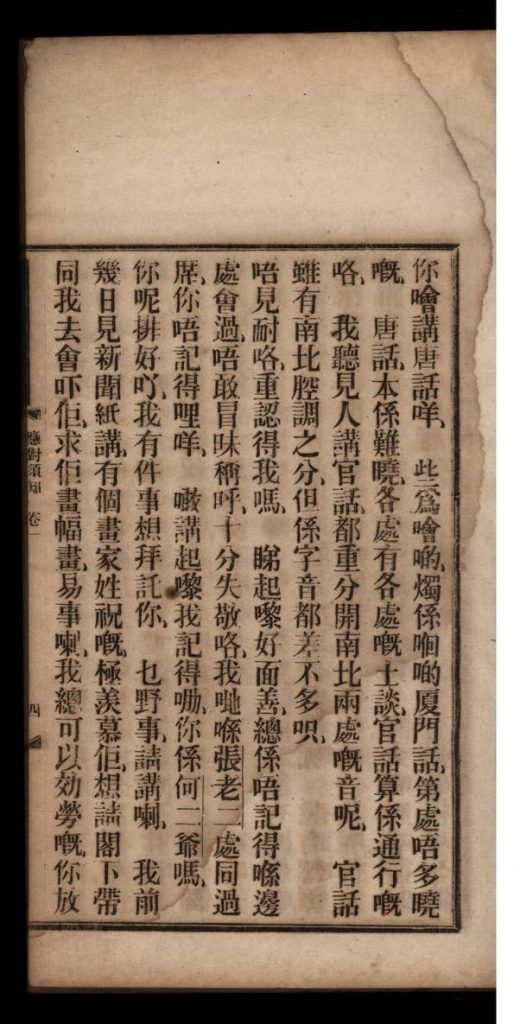 你噲講唐話咩、 些爲噲啲、燭係啯啲厦門話、第處唔多曉
嘅、 唐話、本係難曉、各處有各處嘅土談、官話算係通行嘅
咯、 我聽見人講官話、都重分開南北兩處嘅音呢、 官話
雖有南北腔調之分、但係字音都差不多呮、
唔見耐咯、重認得我嗎、 睇起嚟好面善、總係唔記得喺邊
處會過、唔敢冒昧稱呼、十分失敬咯、我哋喺張老二處同過
席、你唔記得哩咩、 噉講起嚟、我記得嘞、你係何二爺嗎、
你呢排好吖、我有件事想拜託你、 乜野事、請講喇、 我前
幾日見新聞紙講、有個畫家姓祝嘅、極羨慕佢、想請閣下帶
同我去會吓佢、求佢畫幅畫、易事喇、我總可以効勞嘅、你放
應對須知 卷一 四